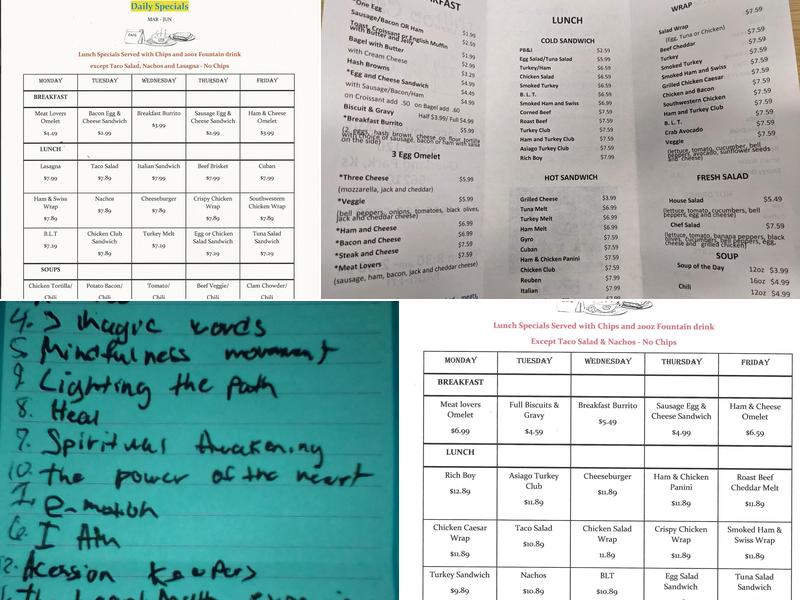 Daily Specials
MAR - JUN
Lunch Specials Served with Chips and 20oz Fountain drink
except Taco Salad, Nachos and Lasagna - No Chips
MONDAY TUESDAY WEDNESDAY THURSDAY FRIDAY
BREAKFAST
Meat Lovers Omelet $4.49
Bacon Egg & Cheese Sandwich $2.99
Breakfast Burrito $3.99
Sausage Egg & Cheese Sandwich $2.99
Ham & Cheese Omelet $3.99
LUNCH
Lasagna $7.99
Taco Salad $7.89
Italian Sandwich $7.89
Beef Brisket $7.99
Cuban $7.89
Ham & Swiss Wrap $7.89
Nachos $7.89
Cheeseburger $7.89
Crispy Chicken Wrap $7.89
Southwestern Chicken Wrap $7.89
B.L.T $7.29
Chicken Club Sandwich $7.89
Turkey Melt $7.29
Egg or Chicken Salad Sandwich $7.29
Tuna Salad Sandwich $7.29
SOUPS
Chicken Tortilla/ Chili
Potato Bacon/ Chili
Tomato/ Chili
Beef Veggie/ Chili
Clam Chowder/ Chili
*One Egg
Sausage/Bacon OR Ham $1.99
Toast, Croissant or English Muffin
with Butter and Jelly
Bagel with Butter $1.99
with Cream Cheese $2.99
Hash Browns
*Egg and Cheese Sandwich
with Sausage/Bacon/Ham
on Croissant add .50 on Bagel add .60
Biscuit & Gravy Half $3.99/ Full $4.99
*Breakfast Burrito $5.99
(2 eggs, hash brown, cheese on flour tortilla
with choice of sausage, bacon or ham with salsa
on the side)
3 Egg Omelet
*Three Cheese $5.99
(mozzarella, jack and cheddar)
*Veggie $5.99
(bell peppers, onions, tomatoes, black olives,
jack and cheddar cheese)
*Ham and Cheese $6.99
*Bacon and Cheese $6.99
*Steak and Cheese $7.59
*Meat Lovers $7.59
(sausage, ham, bacon, jack and cheddar cheese)
LUNCH
COLD SANDWICH
PB&J $2.59
Egg Salad/Tuna Salad $5.99
Turkey/Ham $6.59
Chicken Salad $6.59
Smoked Turkey $6.59
B. L. T. $6.59
Smoked Ham and Swiss $6.99
Corned Beef $7.59
Roast Beef $7.59
Turkey Club $7.59
Ham and Turkey Club $7.59
Asiago Turkey Club $7.59
Rich Boy $7.99
HOT SANDWICH
Grilled Cheese $3.99
Tuna Melt $6.99
Turkey Melt $6.99
Ham Melt $6.99
Gyro $7.59
Cuban $7.59
Ham & Chicken Panini $7.59
Chicken Club $7.59
Reuben $7.59
Italian $7.59
WRAP $7.59
Salad Wrap
(Egg, Tuna or Chicken) $7.59
Beef Cheddar $7.59
Turkey $7.59
Smoked Turkey $7.59
Smoked Ham and Swiss $7.59
Grilled Chicken Caesar $7.59
Chicken and Bacon $7.59
Southwestern Chicken $7.59
Ham and Turkey $7.59
B. L. T. $7.59
Crab Avocado $7.59
Veggie $7.59
(lettuce, tomato, cucumber, bell
peppers, avocado, sunflower seeds
and cheese)
FRESH SALAD
House Salad $5.49
(lettuce, tomato, cucumbers, bell
peppers, egg and cheese)
Chef Salad $7.59
(lettuce, tomato, banana peppers, black
olives, cucumbers, bell peppers, egg,
cheese and grilled chicken)
SOUP
Soup of the Day
12oz $3.99
16oz $4.99
Chili
12oz $4.99
4. 3 magic words
5. Mindfulness movement
9. Lighting the path
8. Heal
7. Spiritual Awakening
10. the power of the heart
1. e-motion
6. I Am
2.
Lunch Specials Served with Chips and 20oz Fountain drink
Except Taco Salad & Nachos - No Chips
MONDAY TUESDAY WEDNESDAY THURSDAY FRIDAY
BREAKFAST
Meat lovers Omelet $6.99
Full Biscuits & Gravy $4.59
Breakfast Burrito $5.49
Sausage Egg & Cheese Sandwich $4.99
Ham & Cheese Omelet $6.59
LUNCH
Rich Boy $12.89
Asiago Turkey Club $11.89
Cheeseburger $11.89
Ham & Chicken Panini $11.89
Roast Beef Cheddar Melt $11.89
Chicken Caesar Wrap $11.89
Taco Salad $10.89
Chicken Salad Wrap 11.89
Crispy Chicken Wrap $11.89
Smoked Ham & Swiss Wrap $11.89
Turkey Sandwich $9.89
Nachos $10.89
BLT $10.89
Egg Salad Sandwich
Tuna Salad Sandwich